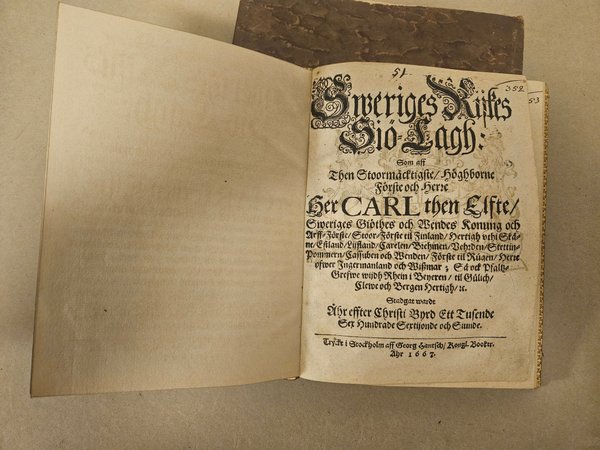 51.
352
53
Sweriges Rijkes
Siö-Lagh:
Som aff
Then Stoormächtigste/ Höghborne
Förste och Herre
Her CARL then Elfte/
Sweriges Giöthes och Wendes Konung och
Arff-Förste/ Stoor-Förste til Finland/ Hertigh vthi Skå-
ne/ Estland/ Lijfland/ Carelen/ Brehmen/ Vehrden/ Stettin-
Pommern/ Cassuben och Wenden/ Förste til Rügen/ Herre
öfwer Ingermanland och Wißmar; Så ock Pfaltz-
Grefwe widh Rhein i Beyeren/ til Gülich/
Clewe och Bergen Hertigh/ ꝛc.
Stadgat wardt
Åhr effter Christi Byrd Ett Tusende
Sex Hundrade Sextijonde och Siunde.
Tryckt i Stockholm aff Georg Hantsch/ Kongl. Booktr.
Åhr 1667.